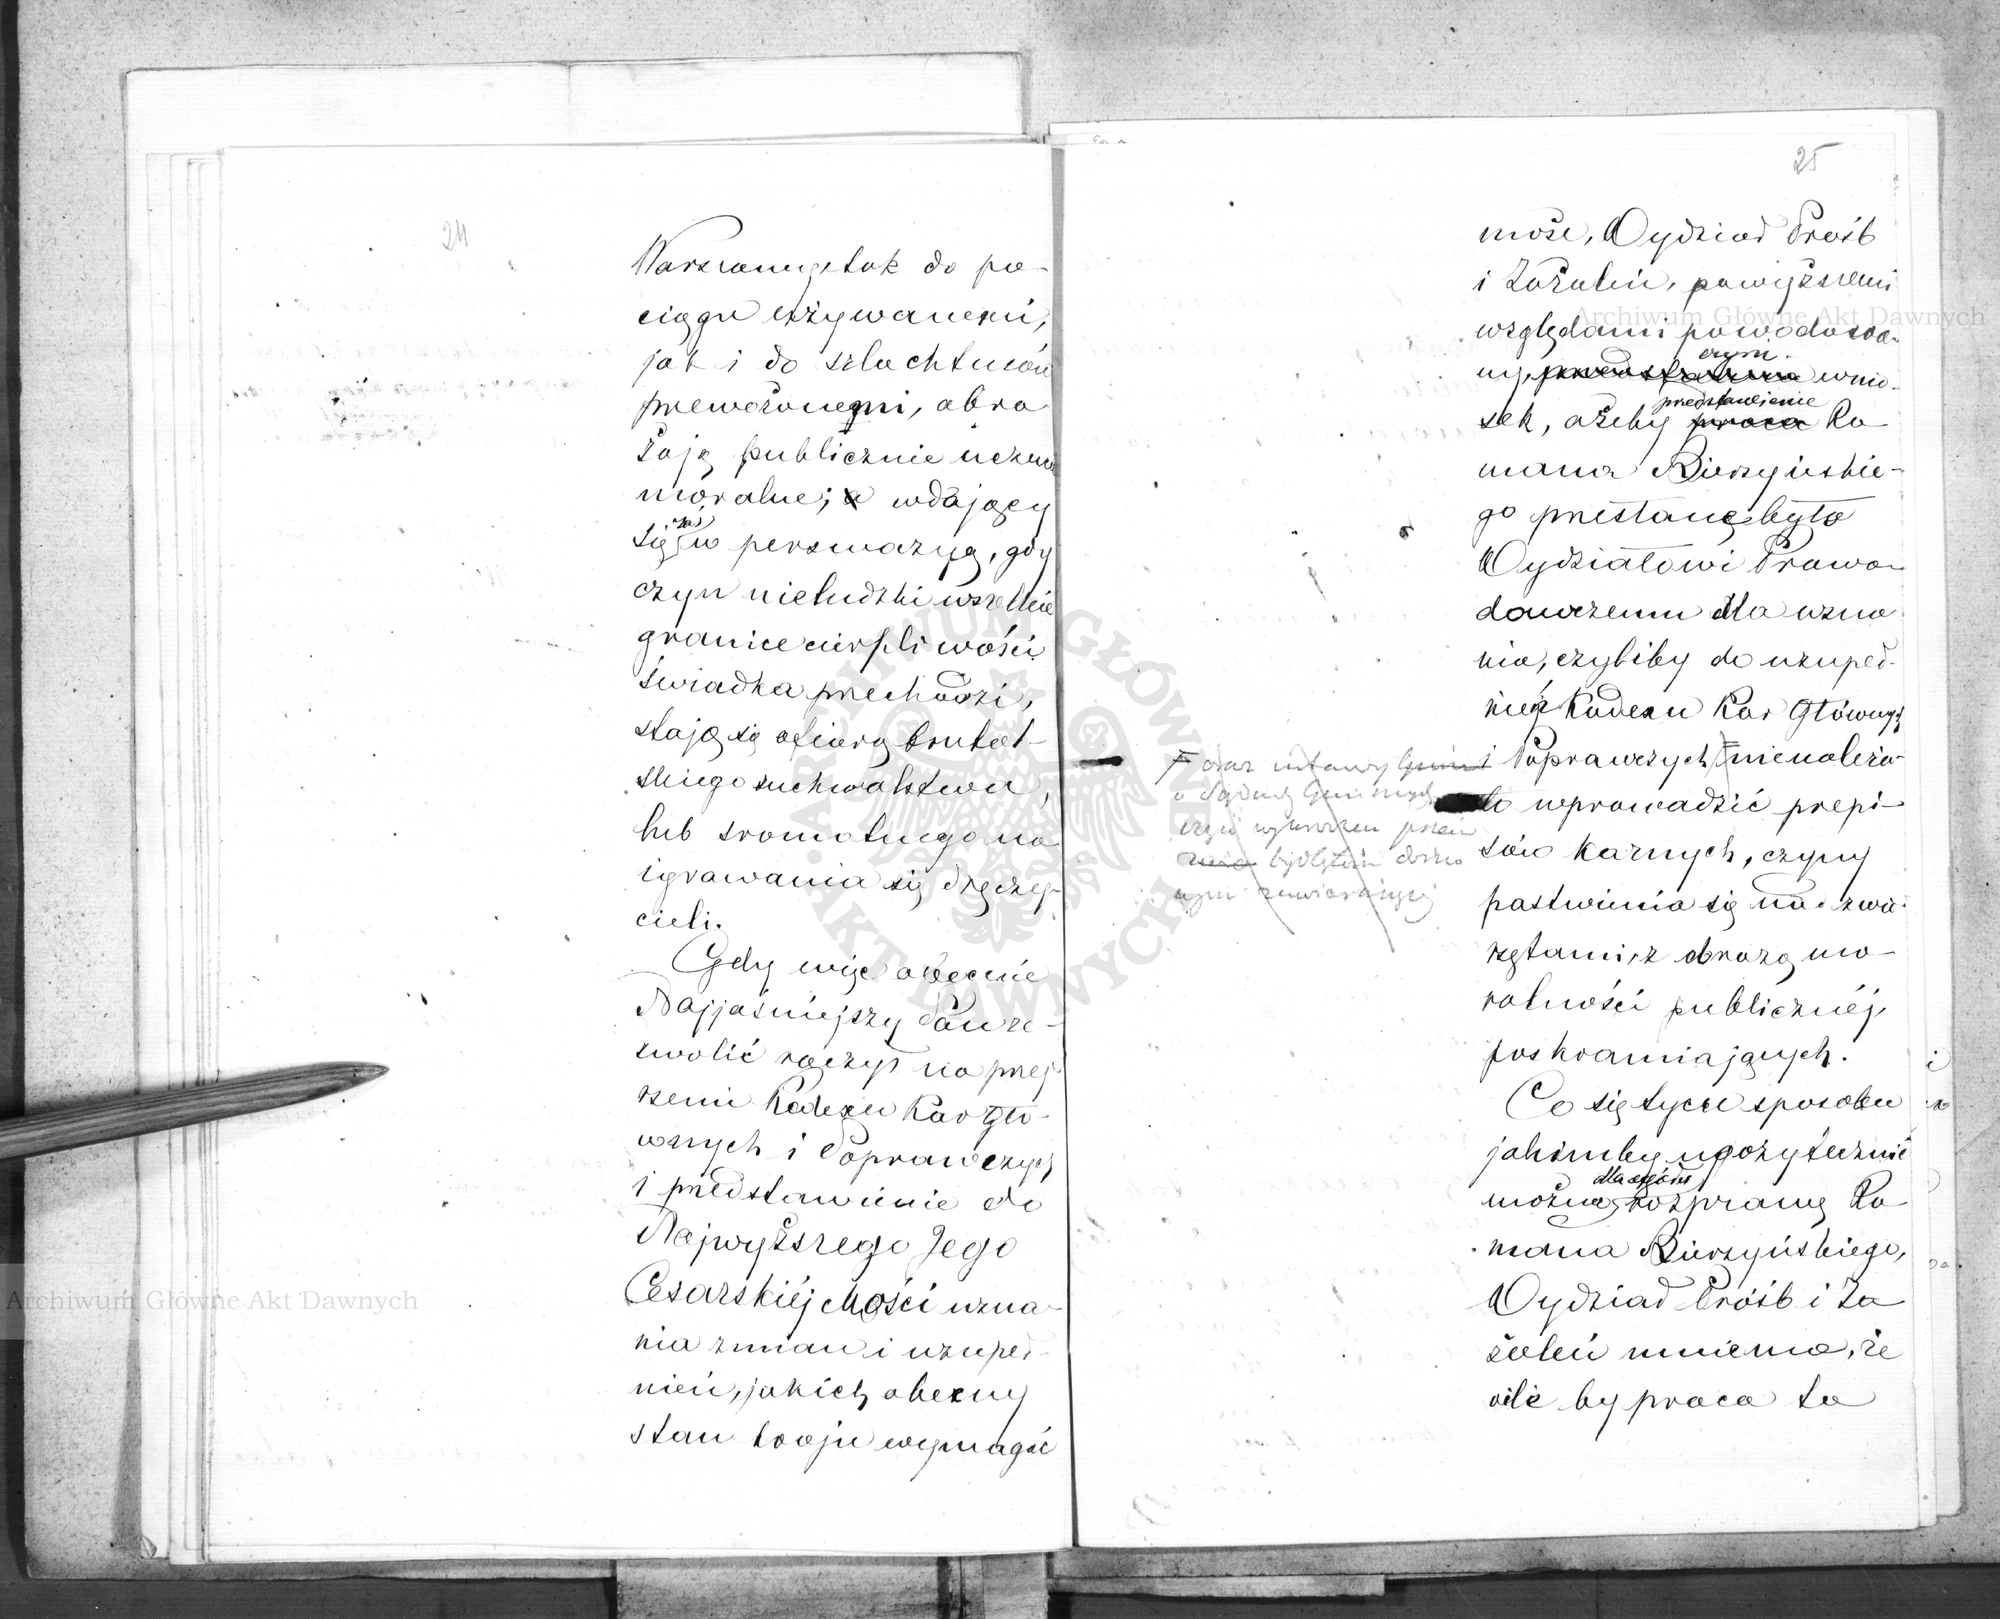 24
Warszawie tak do po-
ciągu używanemi,
jak i do szlachtuzów
przewożonemi, obra-
żają publicznie uczucia
moralne; a wdający
się zaś w perswazyą, gdy
czyn nieludzki wszelkie
granice cierpliwości
świadka przechodzi,
stają się ofiarą brutal-
skiego zuchwalstwa,
lub sromotnego na
igrawania się dręczy-
cieli.
Gdy więc obecnie
Najjaśniejszy Pan ze-
zwolić raczył na przej-
rzenie Kodexu Kar Głó-
wnych i Poprawczych
i przedstawienie do
Najwyższego Jego
Cesarskiéj Mości uzna-
nia zmian i uzupeł-
nień, jakich obecny
stan kraju wymagać
25
może, Wydział Próśb
i Zażaleń, powyższemi
względami powodowa-
ny, czyni wnio-
sek, ażeby przedstawienie Ro-
mana Bierzyńskie-
go przesłane było
Wydziałowi Prawo-
dawczemu dla uzna-
nia, czyliby do uzupeł-
nień Kodexu Kar Głównych
i Poprawczych nie należa-
ło wprowadzić przepi-
sów karnych, czyny
pastwienia się nad zwie-
rzętami, z obrazą mo-
ralności publicznéj,
poskramiających.
Co się tycze sposobu
jakimby użytecznie
można dla ogółu rozprawę Ro-
mana Bierzyńskiego,
Wydział Próśb i Za-
żaleń mniema, że
oile by praca ta
F oraz ustawy Gmin
o Sądach Gminnych
Archiwum Główne Akt Dawnych
Archiwum Główne Akt Dawnych
ARCHIWUM GŁÓWNE AKT DAWNYCH